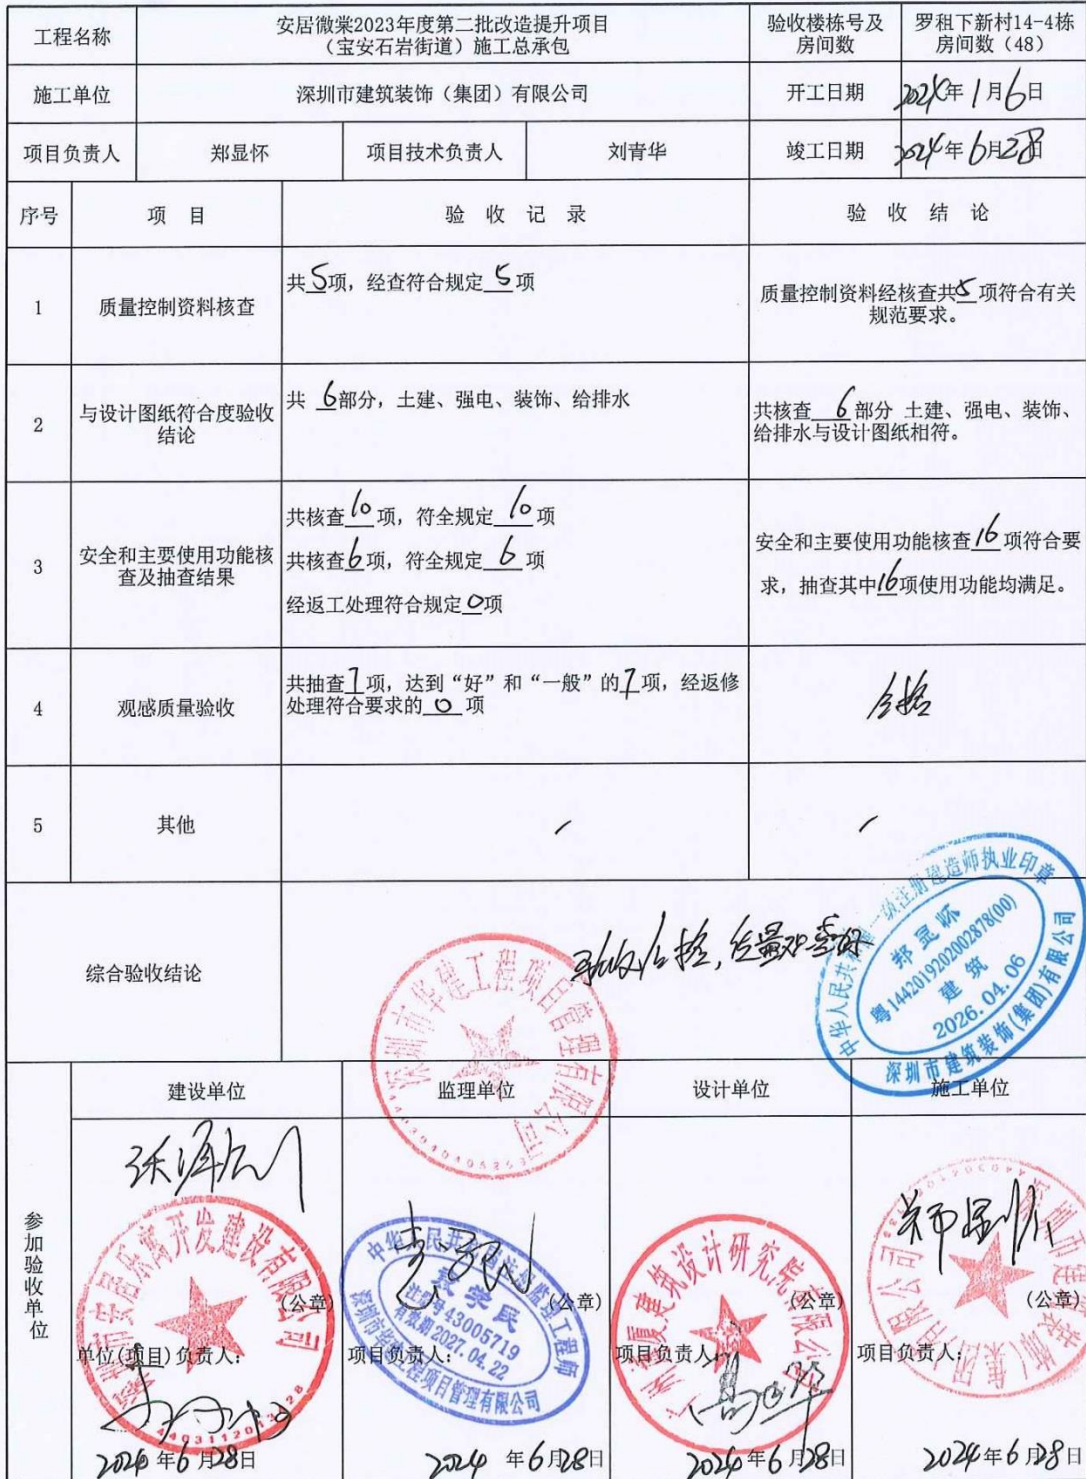 工程名称
安居微棠2023年度第二批改造提升项目
（宝安石岩街道）施工总承包
验收楼栋号及
房间数
罗租下新村14-4栋
房间数（48）
施工单位
深圳市建筑装饰（集团）有限公司
开工日期
2024年1月6日
项目负责人
郑显怀
项目技术负责人
刘青华
竣工日期
2024年6月28日
序号
项 目
验 收 记 录
验 收 结 论
1
质量控制资料核查
共5项，经查符合规定5项
质量控制资料经核查共5项符合有关
规范要求。
2
与设计图纸符合度验收
结论
共 6部分，土建、强电、装饰、给排水
共核查 6 部分 土建、强电、装饰、
给排水与设计图纸相符。
3
安全和主要使用功能核
查及抽查结果
共核查10项，符全规定 10 项
共核查6项，符全规定 6 项
经返工处理符合规定0项
安全和主要使用功能核查16项符合要
求，抽查其中16项使用功能均满足。
4
观感质量验收
共抽查7项，达到“好”和“一般”的7项，经返修
处理符合要求的 0 项
合格
5
其他
综合验收结论
验收合格，质量观感好
中华人民共和国一级注册建造师执业印章
郑显怀
粤1442019202002878(00)
建筑
2026.04.06
深圳市建筑装饰(集团)有限公司
深圳市华建工程项目管理有限公司
参加验收单位
建设单位
监理单位
设计单位
施工单位
安居乐寓开发建设有限公司
(公章)
单位(项目)负责人：
2024年6月28日
中华人民共和国注册监理工程师
袁学民
注册号43005719
有效期2027.04.22
深圳市华建工程项目管理有限公司
(公章)
项目负责人：
2024年6月28日
厦建筑设计研究院有限公司
(公章)
项目负责人：
2024年6月28日
郑显怀
(公章)
项目负责人：
2024年6月28日